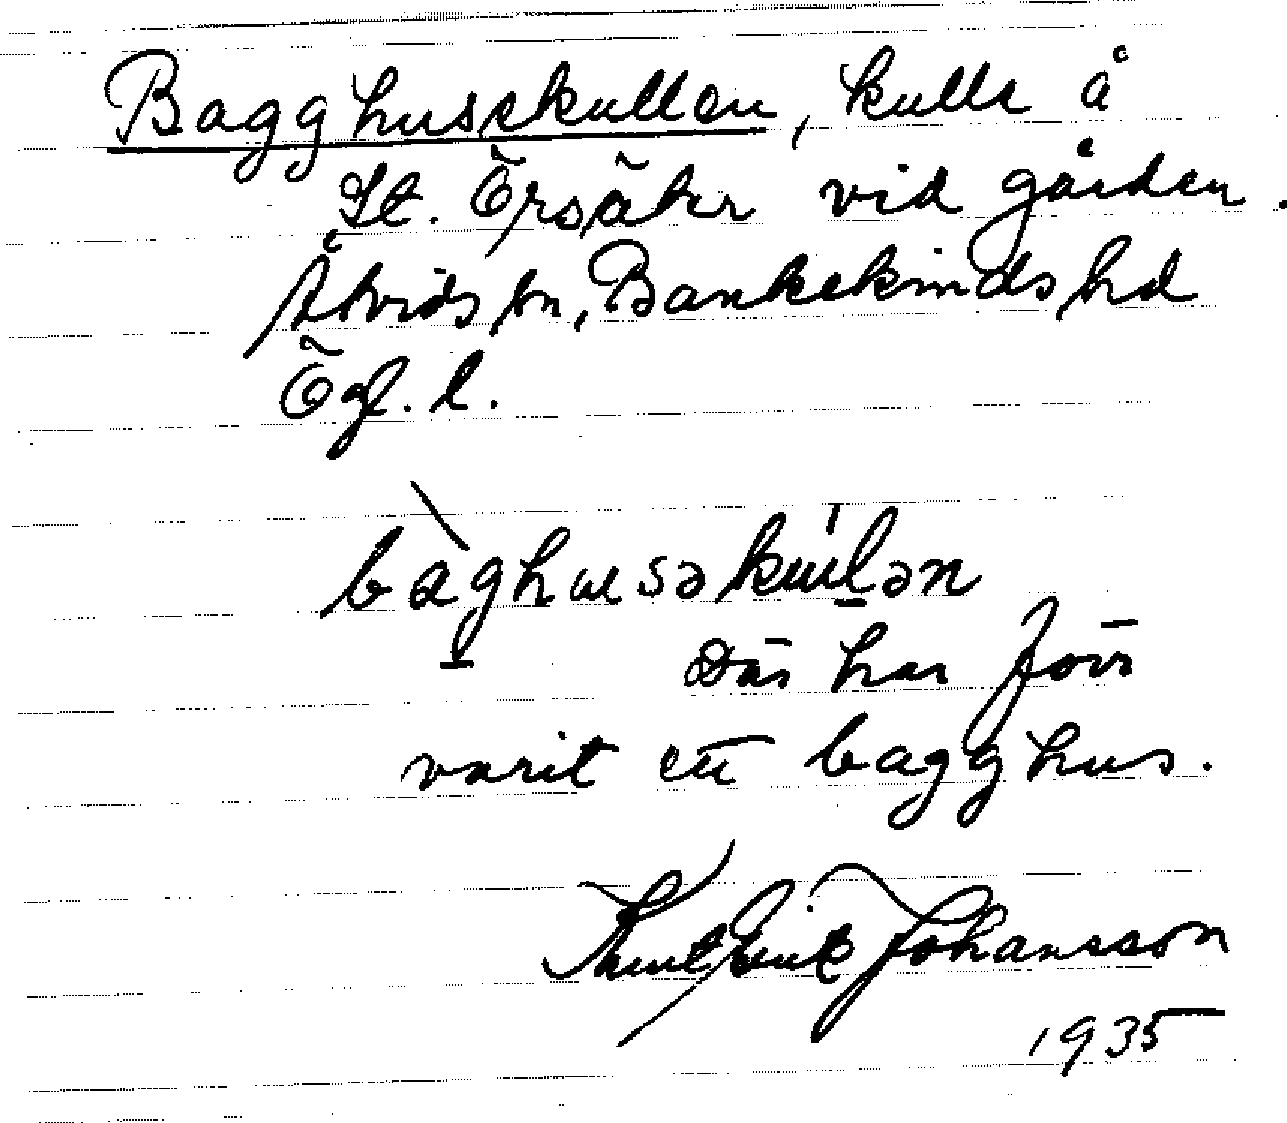 Bagghusekullen, kulle å
St. Örsätter vid gården.
Åtvids sn, Bankekinds hd
Ögl. l.
bàghusəkulən
Där har förr
varit ett bagghus.
Johansson
1935